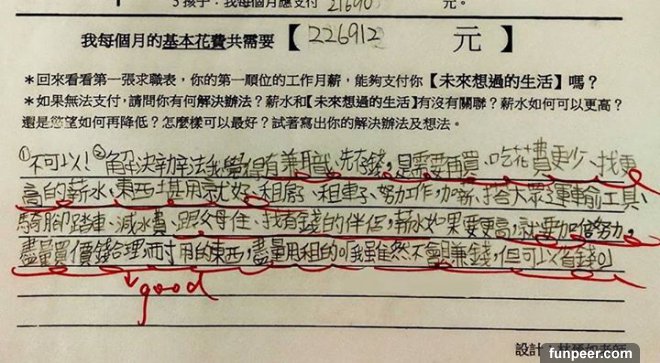 3孩子：我每個月應支付 21690 元。
我每個月的基本花費共需要【226912 元】
＊回來看看第一張求職表，你的第一順位的工作月薪，能夠支付你【未來想過的生活】嗎？
＊如果無法支付，請問你有何解決辦法？薪水和【未來想過的生活】有沒有關聯？薪水如何可以更高？
還是慾望如何再降低？怎麼樣可以最好？試著寫出你的解決辦法及想法。
①不可以！②解決辦法我覺得有兼職、先存錢，是需要再買、吃花費更少、找更
高的薪水、東西堪用就好、租房子、租車子、努力工作、加薪、搭大眾運輸工具、
騎腳踏車、減水費、跟父母住、找有錢的伴侶，薪水如果要更高，就要加倍努力，
盡量買價錢合理，耐用的東西，盡量用租的。我雖然不會賺錢，但可以省錢。
good
設計：林 老師
funpeer.com